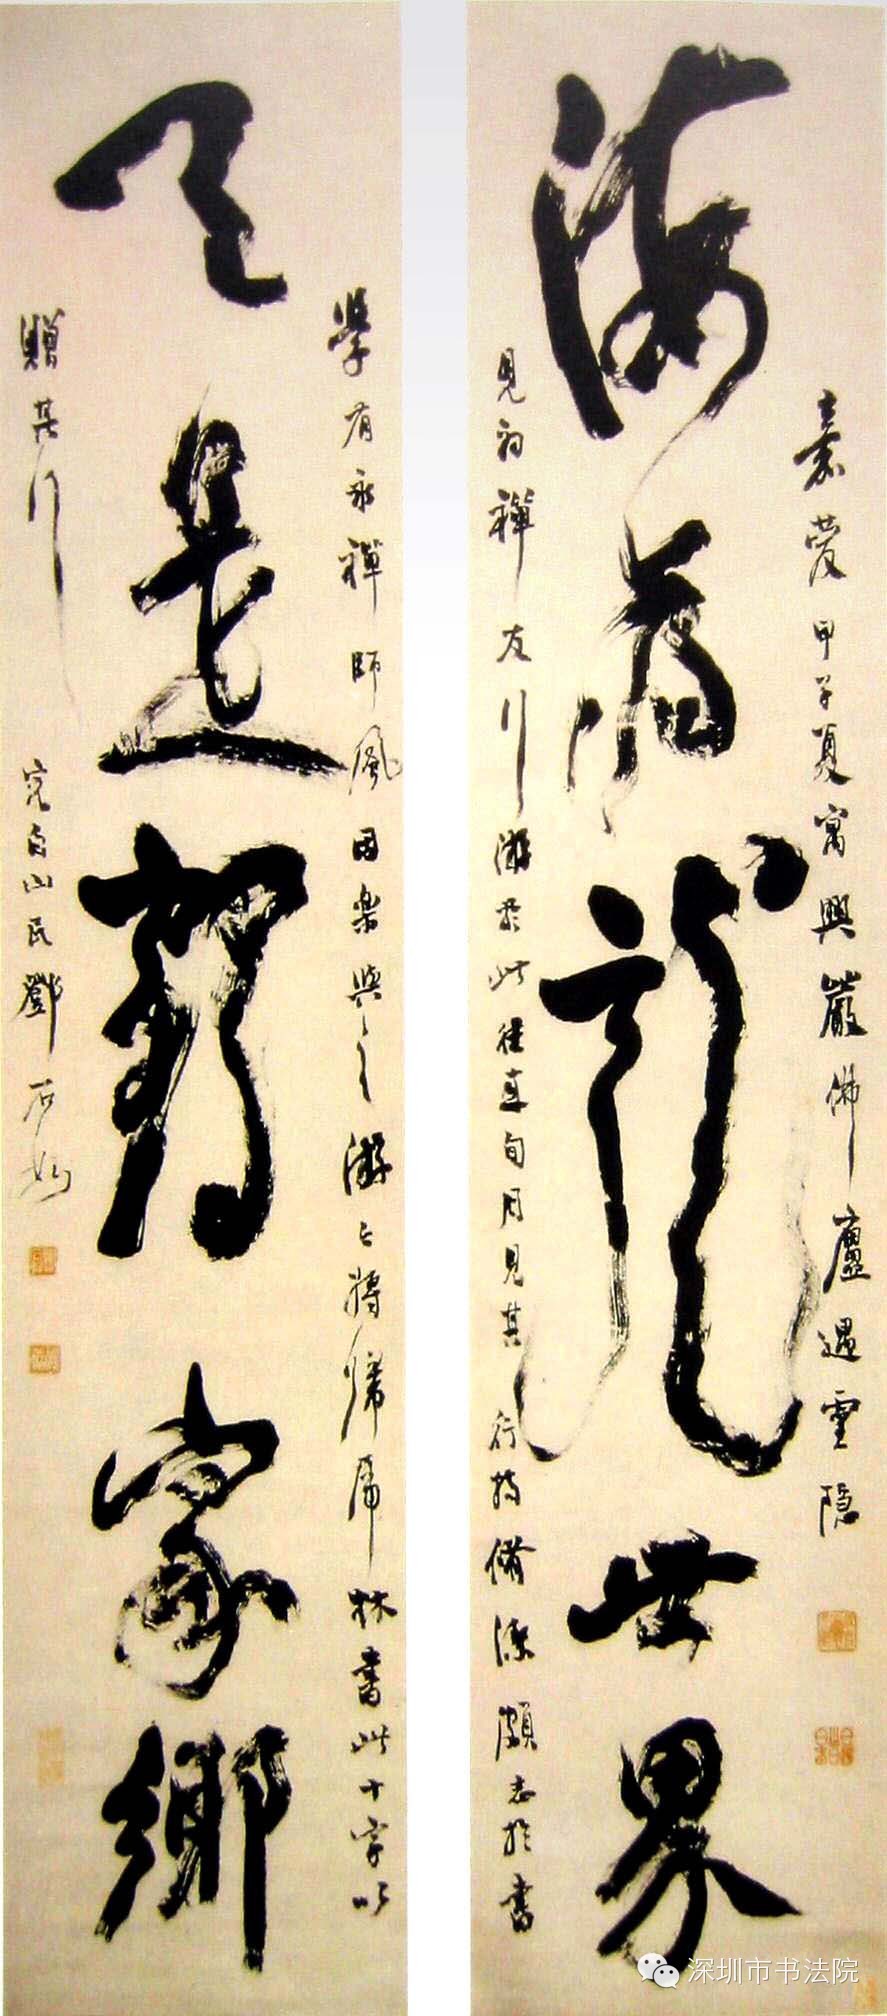 海為龍世界
嘉慶甲子夏寓興嚴佛廬遇靈隱
見初禪友行游於此往真旬月見其行持修潔頗志於書
天是鶴家鄉
學有永禪師風因樂與之游已將歸虎林書此十字以
贈其行
完白山民鄧石如
深圳市书法院